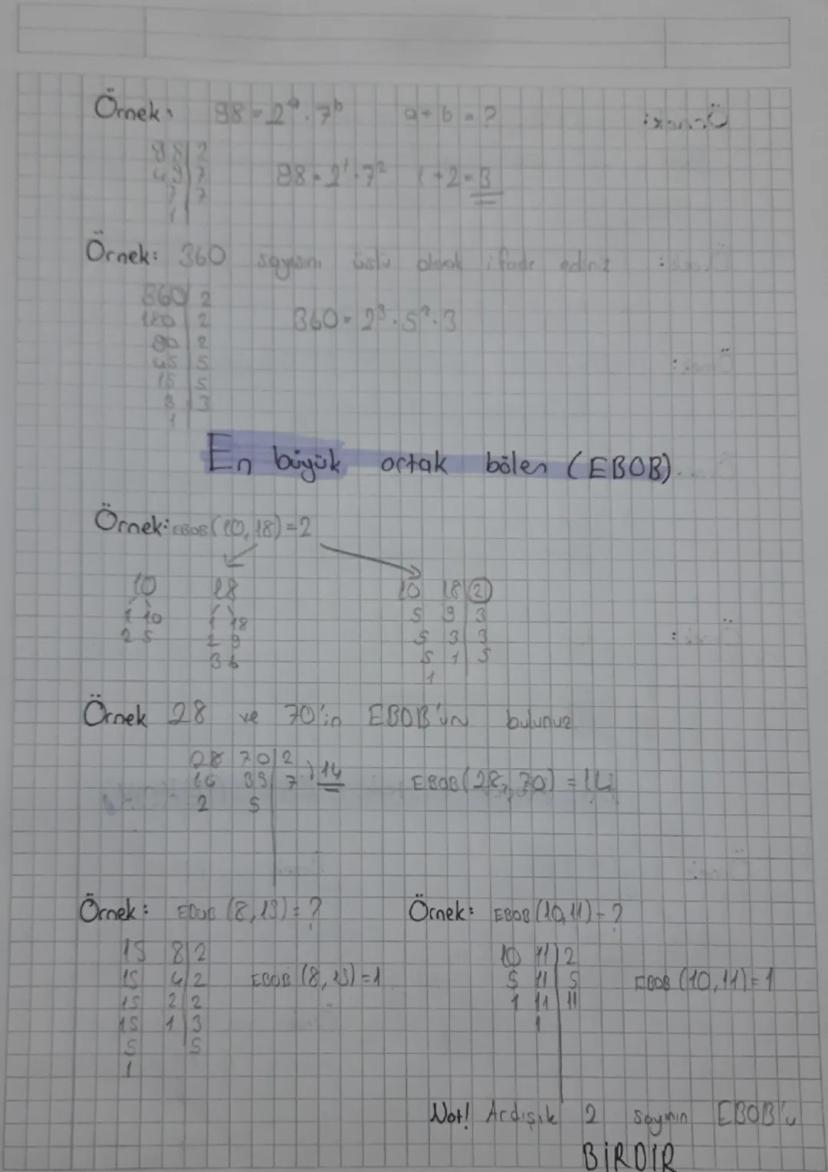 Örnek: 98 = 2ᵃ . 7ᵇ a + b = ?
98 2
49 7
7 7
1
98 = 2¹ . 7² 1 + 2 = 3
Örnek: 360 sayısını üslü olarak ifade ediniz
360 2
180 2
90 2
45 5
15 5
3 3
1
360 = 2³ . 5² . 3
En büyük ortak bölen (EBOB)
Örnek: EBOB (10, 18) = 2
10 18
1 10 1 18
2 5 2 9
3 6
10 18 2
5 9 3
5 3 3
5 1 5
1
Örnek 28 ve 70'in EBOB'un bulunuz
28 70 2
14 35 7 14
2 5
EBOB (28, 70) = 14
Örnek: EBOB (8, 15) = ?
15 8 2
15 4 2
15 2 2
15 1 3
5 5
1
EBOB (8, 15) = 1
Örnek: EBOB (10, 11) = ?
10 11 2
5 11 5
1 11 11
1
EBOB (10, 11) = 1
Not! Ardışık 2 sayının EBOB'u
BİRDİR